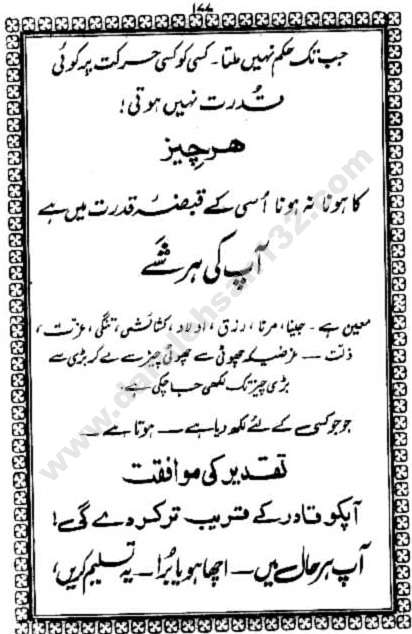 ۱۷۷
جب تک حکم نہیں ملتا۔ کسی کو کسی حرکت پر کوئی
قُدرت نہیں ہوتی!
ہر چیز
کا ہونا نہ ہونا اُسی کے قبضۂ قدرت میں ہے
آپ کی ہر شَے
معین ہے۔ جینا، مرنا، رزق، اولاد، کشائش، تنگی، عزت،
ذلت — غرضیکہ چھوٹی سے چھوٹی چیز سے لے کر بڑی سے
بڑی چیز تک لکھی جا چکی ہے،
جو جو کسی کے لئے لکھ دیا ہے — ہوتا ہے —
تقدیر کی موافقت
آپکو قادر کے قریب تر کر دے گی!
آپ ہر حال میں — اچھا ہو یا بُرا — یہ تسلیم کریں،
www.daralehsan132.com